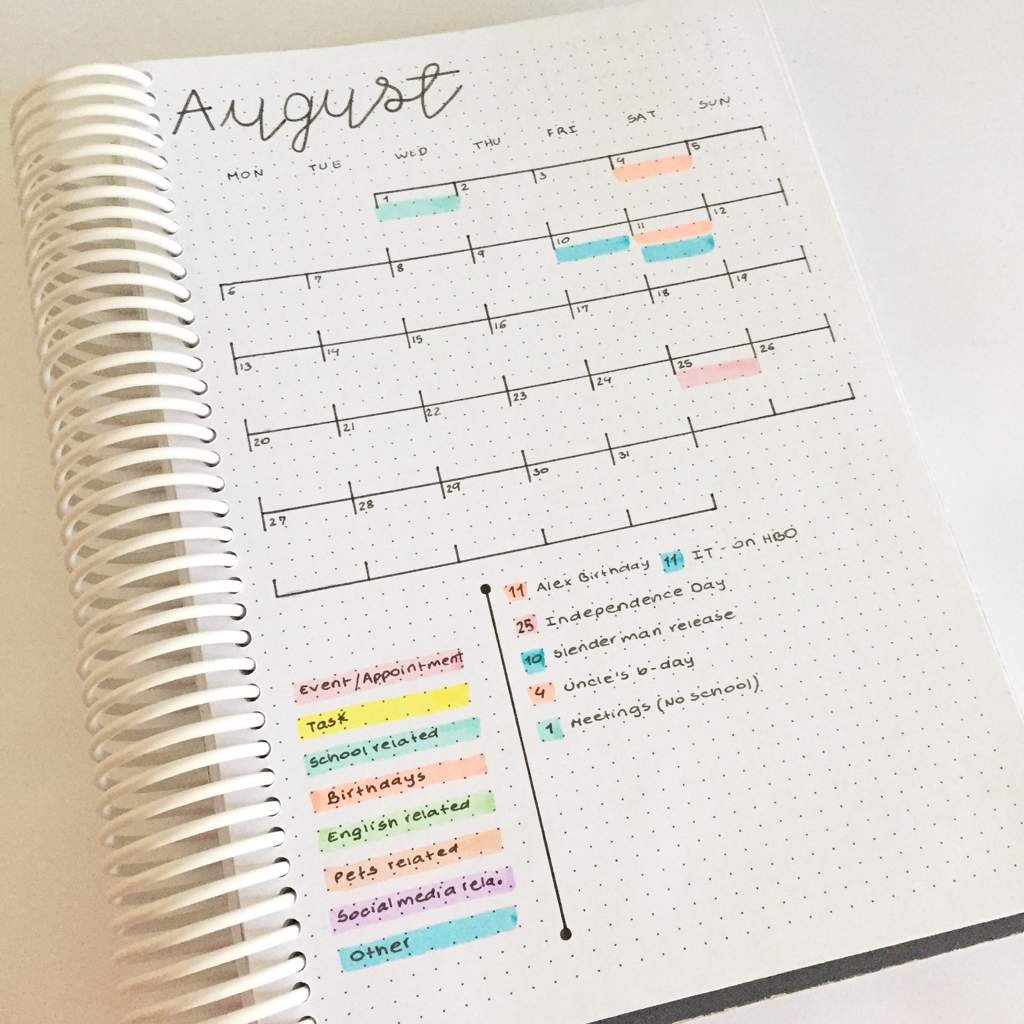 August
MON TUE WED THU FRI SAT SUN
1 2 3 4 5
6 7 8 9 10 11 12
13 14 15 16 17 18 19
20 21 22 23 24 25 26
27 28 29 30 31
11 Alex Birthday 11 IT - on HBO
25 Independence Day
10 Slenderman release
4 Uncle's b-day
1 Meetings (No school)
Event/Appointment
Task
School related
Birthdays
English related
Pets related
Social media rela.
Other